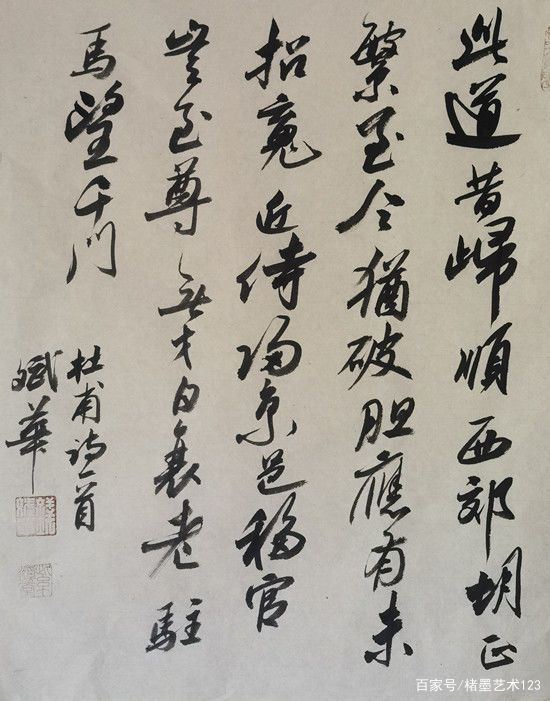 此道昔歸順西郊胡正
繁至今猶破胆應有未
招魂近侍歸京邑移官
豈至尊無才日衰老駐
馬望千門
杜甫詩一首
斌華
百家号/楮墨艺术123